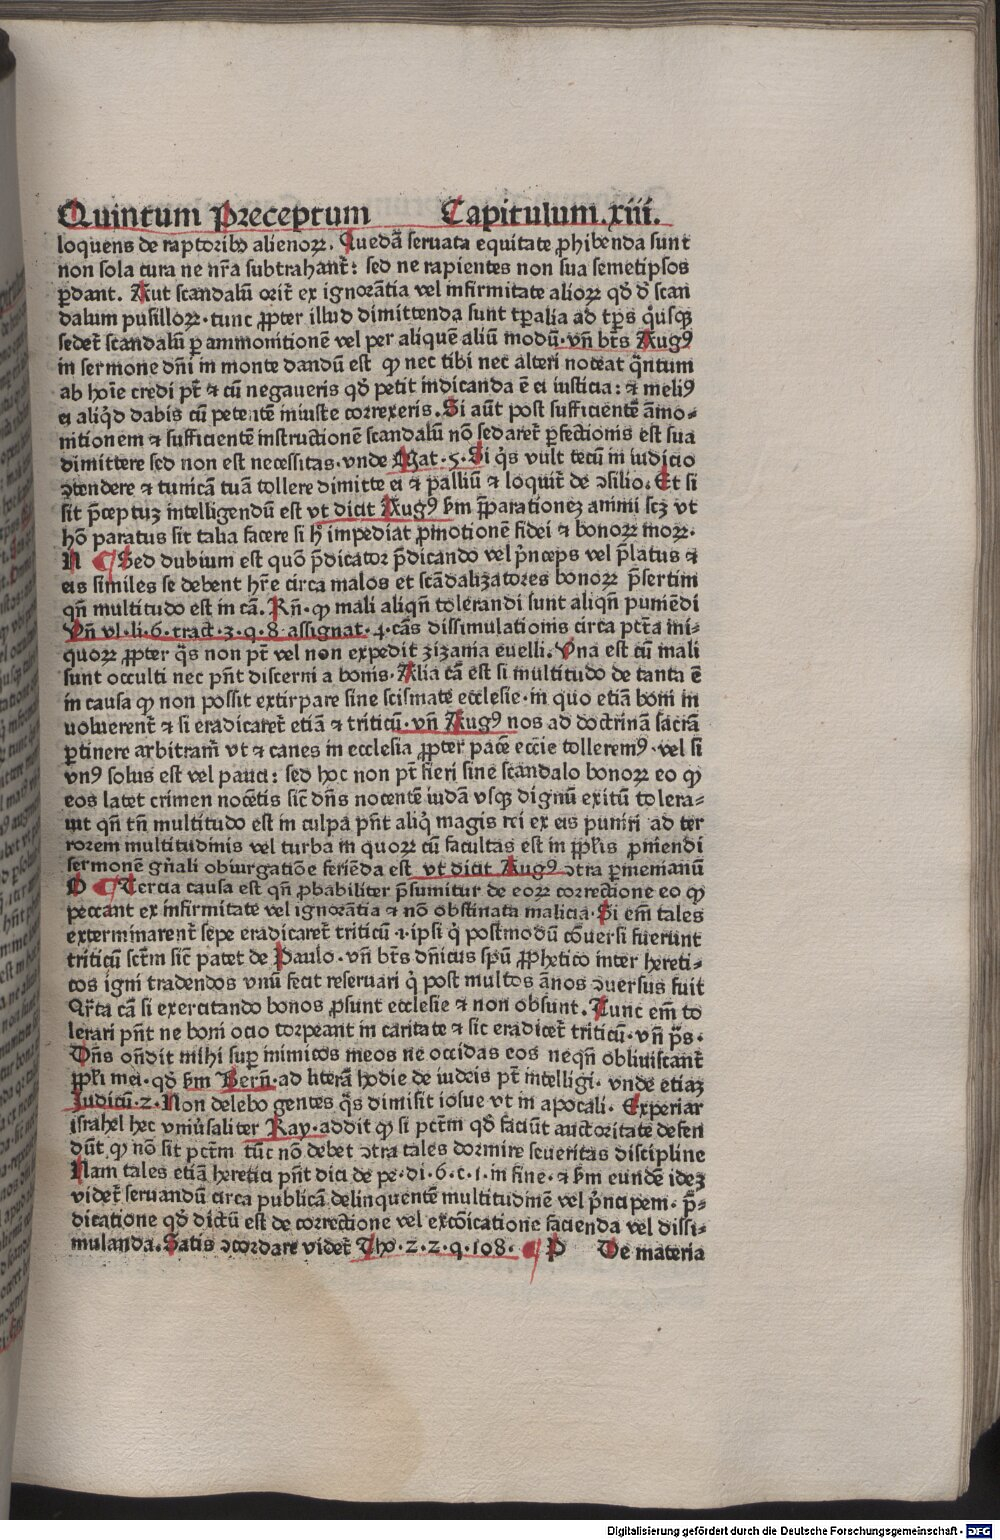 Quintum Preceptum Capitulum .xiii.
loquens de raptoribꝰ alienoꝝ. Quedā seruata equitate ꝓhibenda sunt
non sola cura ne nr̄a subtrahant᷑: sed ne rapientes non sua semetipsos
ꝑdant. Aut scandalū orit᷑ ex ignorātia vel infirmitate alioꝝ qd̄ d̄ scan
dalum pusilloꝝ. tunc ꝓpter illud dimittenda sunt tꝑalia ad tp̄s q̇usqꝫ
sedet᷑ scandalū ꝑ ammonitionē vel per aliquē aliū modū. vn̄ bt̄s Augꝰ
in sermone dn̄i in monte dandū est ꝙ nec tibi nec alteri noceat q̄ntum
ab hoīe credi pt̄ ⁊ cū negaueris qd̄ petit indicanda ē ei iusticia: ⁊ meliꝰ
ei aliq̇d dabis cū petentē iniuste correxeris. Si aūt post sufficientē āmo⸗
nitionem ⁊ sufficientē instructionē scandalū nō sedaret᷑ ꝑfectionis est sua
dimittere sed non est necessitas. vnde Mat. 5. Si q̇s vult tecū in iudicio
ↄtendere ⁊ tunicā tuā tollere dimitte ei ⁊ palliū ⁊ loquit᷑ de ↄsilio. Et si
sit p̄ceptuꝫ intelligendū est vt dicit Augꝰ ẜm p̄parationeꝫ animi scꝫ vt
hō paratus sit talia facere si h̊ impediat ꝓmotionē fidei ⁊ bonoꝝ moꝝ.
N ¶ Sed dubium est quō p̄dicator p̄dicando vel p̄nceps vel p̄latus ⁊
eis similes se debent hr̄e circa malos et scādalizatores bonoꝝ p̄sertim
qn̄ multitudo est in cā. Rn̄. ꝙ mali aliqn̄ tolerandi sunt aliqn̄ puniēdi
Vn̄ vl. li. 6. tract. 3. q. 8 assignat. 4. cās dissimulationis circa pctā ini⸗
quoꝝ ꝓpter q̄s non pt̄ vel non expedit zizania euelli. Vna est cū mali
sunt occulti nec pn̄t discerni a bonis. Alia cā est si multitudo de tanta ē
in causa ꝙ non possit extirpare sine scismate ecclesie. in quo etiā boni in
uoluerent᷑ ⁊ si eradicaret᷑ etiā ⁊ triticū. vn̄ Augꝰ nos ad doctrinā sacrā
ꝑtinere arbitram᷑ vt ⁊ canes in ecclesia ꝓpter pacē eccīe tolleremꝰ. vel si
vnꝰ solus est vel pauci: sed hoc non pt̄ fieri sine scandalo bonoꝝ eo ꝙ
eos latet crimen nocētis sic̄ dn̄s nocentē iudā vsqꝫ dignū exitū tolera⸗
uit qn̄ tn̄ multitudo est in culpa pn̄t aliq̇ magis rei ex eis puniri ad ter
rorem multitudinis vel turba in quoꝝ cū facultas est in ꝓplis ꝓmendi
sermonē gn̄ali obiurgatiōe ferienda est vt dicit Augꝰ ↄtra ꝑmenianū
O ¶ Tercia causa est qn̄ ꝓbabiliter p̄sumitur de eoꝝ correctione eo ꝙ
peccant ex infirmitate vel ignorātia ⁊ nō obstinata malicia. Si em̄ tales
exterminarent᷑ sepe eradicaret᷑ triticū .i. ipsi q̇ postmodū cōuersi fuerunt
triticū sctm̄ sic̄ patet de Paulo. vn̄ bt̄s dn̄icus sp̄ū ꝓphetico inter hereti⸗
cos igni tradendos vnū fecit reseruari q̇ post multos ānos ↄuersus fuit
Qr̄ta cā si exercitando bonos ꝓsunt ecclesie ⁊ non obsunt. Tunc em̄ to
lerari pn̄t ne boni ocio torpeant in caritate ⁊ sic eradicet᷑ triticū. vn̄ p̄s.
Dn̄s on̄dit mihi suꝑ inimicos meos ne occidas eos neqn̄ obliuiscant᷑
ꝓpli mei. qd̄ ẜm Bern̄. ad literā hodie de iudeis pt̄ intelligi. vnde etiaꝫ
Judicū. 2. Non delebo gentes q̄s dimisit iosue vt in apocali. Experiar
israhel hec vniu̇saliter Ray. addit ꝙ si pctm̄ qd̄ faciūt auctoritate defen
dūt ꝙ nō sit pctm̄ tūc nō debet ↄtra tales dormire seueritas discipline
Nam tales etiā heretici pn̄t dici de pe. di. 6. c. 1. in fine. ⁊ ẜm eundē ideꝫ
videt᷑ seruandū circa publicā delinquentē multitudinē vel p̄ncipem. p̄⸗
dicatione qd̄ dictū est de correctione vel excōicatione facienda vel dissi⸗
mulanda. Satis ↄcordare videt᷑ Tho. 2. 2. q. 108. ¶ P De materia
Digitalisierung gefördert durch die Deutsche Forschungsgemeinschaft - DFG